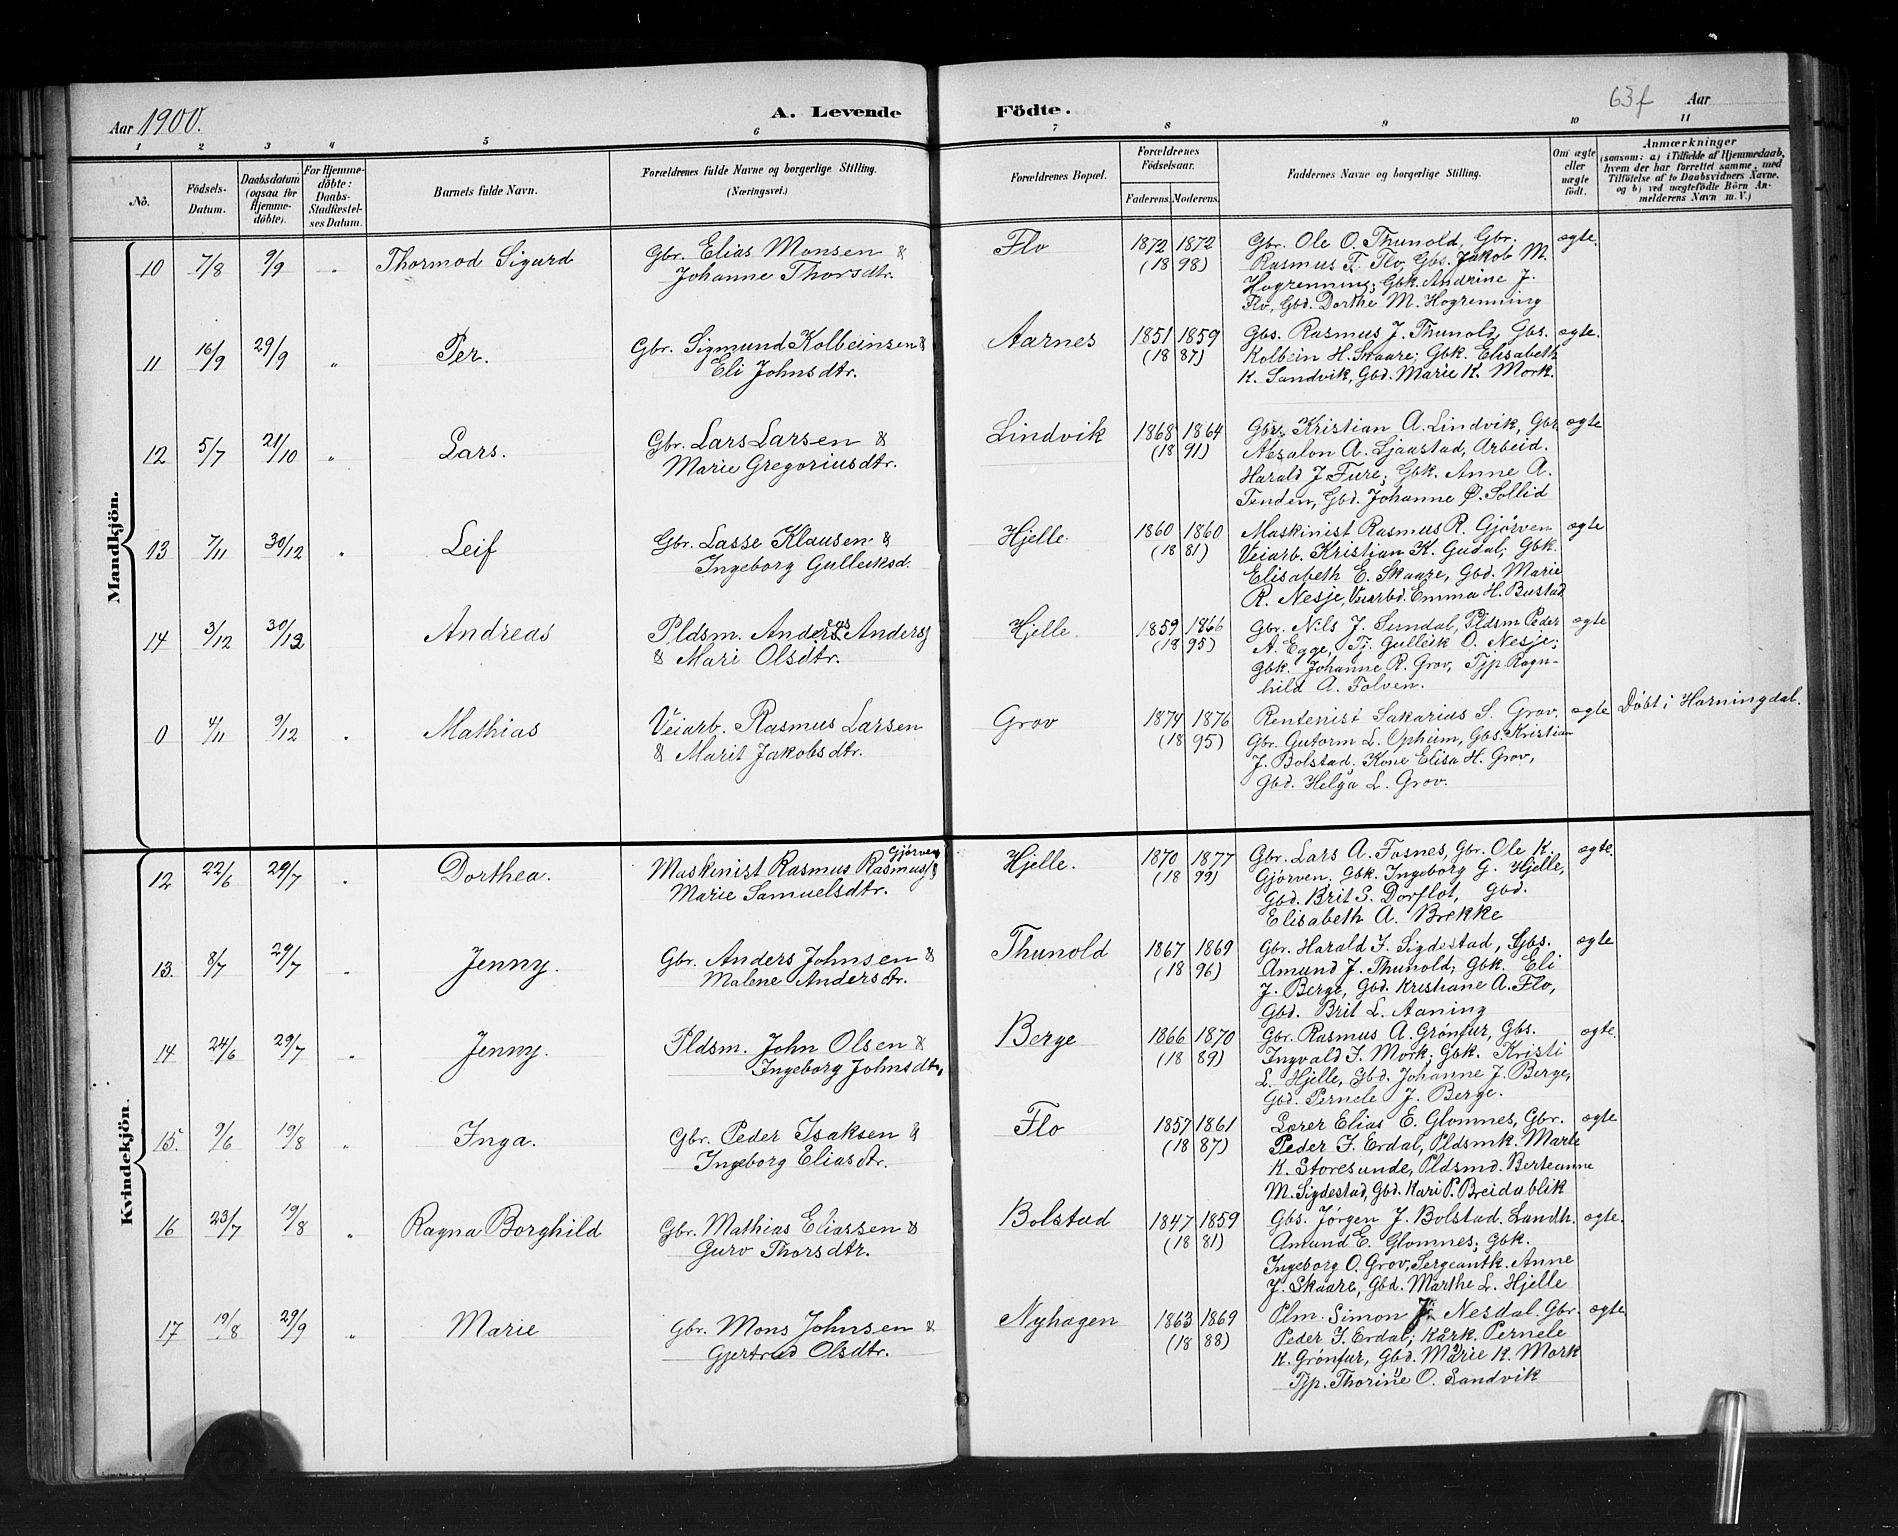 Aar 1900.
A. Levende Födte.
63f Aar
1 2 3 4 5 6 7 8 9 10 11
No.
Födsels-Datum.
Daabsdatum (ogsaa for Hjemme-döbte).
For Hjemme-döbte: Daabs-Stadfæstel-ses Datum.
Barnets fulde Navn.
Forældrenes fulde Navne og borgerlige Stilling.
(Næringsvei.)
Forældrenes Bopæl.
Forældrenes Födselsaar.
Faderens. Moderens.
Faddernes Navne og borgerlige Stilling.
Om ægte eller uægte födt.
Anmærkninger
(saasom: a) i Tilfælde af Hjemmedaab, hvem der har forrettet samme, med Tilföielse af to Daabsvidners Navne. og b) ved uægtefödte Börn An-melderens Navn m. V.)
Mandkjön.
10 7/8 9/9 " Thormod Sigurd Gbr. Elias Monsen & Flo 1872 1872 Gbr. Ole O. Thunold, Gbr. ægte.
Johanne Thorsdtr. (18 98) Rasmus F. Flo, Gbs. Jakob M.
Hogrenning; Gbk. Andrine J.
Flo, Gbd. Dorthe M. Hogrenning
11 16/9 29/9 " Per. Gbr. Sigmund Kolbeinsen & Aarnes 1851 1859 Gbs. Rasmus J. Thunold, Gbs. ægte.
Eli Johnsdtr. (18 87) Kolbein H. Skaare; Gbk. Elisabeth
K. Sandvik, Gbd. Marie K. Mork.
12 5/7 21/10 " Lars. Gbr. Lars Larsen & Lindvik 1868 1864 Gbrs. Kristian A. Lindvik, Gbr. ægte
Marie Gregoriusdtr. (18 91) Absalon A. Ljaastad, Arbeid.
Harald J. Fure; Gbk. Anne A.
Tenden, Gbd. Johanne Ø. Sollid
13 7/11 30/12 " Leif Gbr. Lasse Klausen & Hjelle. 1860 1860 Maskinist Rasmus R. Gjørven ægte
Ingeborg Gulleiksd. (18 81) Veiarb. Kristian K. Gudal; Gbk.
Elisabeth E. Skaare, Gbd. Marie
R. Nesje, Veiarbd. Emma H. Bustad
14 3/12 30/12 Andreas Pldsm. Anders Anders & Hjelle. 1859 1866 Gbr. Nils J. Sundal, Pldsm Peder ægte
& Mari Olsdtr. (18 95) A. Egge, Tj. Gulleik O. Nesje;
Gbk. Johanne R. Grov, Tjp. Ragn-
hild A. Folven.
0 4/11 9/12 " Mathias Veiarb. Rasmus Larsen Grov 1874 1876 Rentenist Sakarius S. Grov, ægte Døbt i Horningdal.
& Marit Jakobsdtr. (18 95) Gbr. Gutorm L. Opheim, Gbs. Kristian
J. Bolstad. Kone Elisa H. Grov,
Gbd. Helga L. Grov.
Kvindekjön.
12 22/6 29/7 " Dorthea. Maskinist Rasmus Rasmus Gjørven & Hjelle. 1870 1877 Gbr. Lars A. Fosnes, Gbr. Ole K. ægte.
Marie Samuelsdtr. (18 99) Gjørven. Gbk. Ingeborg G. Hjelle,
Gbd. Brit S. Dorflot, Gbd.
Elisabeth A. Brekke
13. 8/7 29/7 " Jenny. Gbr. Anders Johnsen & Thunold 1867 1869 Gbr. Harald J. Sigdestad, Gbs. ægte
Malene Andersdtr. (18 96) Amund J. Thunold; Gbk. Eli
J. Berge, Gbd. Kristiane A. Flo,
Gbd. Brit L. Aaning
14. 24/6 29/7 " Jenny. Pldsm. John Olsen & Berge 1866 1870 Gbr. Rasmus A. Grønfur, Gbs. ægte.
Ingeborg Johnsdtr. (18 89) Ingvald J. Mork; Gbk. Kristi
L. Hjelle, Gbd. Johanne J. Berge,
Gbd. Pernele J. Berge.
15. 9/6 19/8 " Inga. Gbr. Peder Isaksen & Flo 1857 1861 Lærer Elias E. Glomnes, Gbr. ægte
Ingeborg Eliasdtr. (18 87) Peder J. Erdal, Pldsmk. Marte
K. Storesunde, Pldsmd. Berteanne
M. Sigdestad, Gbd. Kari P. Breidablik
16 23/7 19/8 " Ragna Borghild Gbr. Mathias Eliassen & Bolstad 1847 1859 Gbs. Jørgen J. Bolstad. Landh. ægte.
Guro Thorsdtr. (18 81) Amund E. Glomnes; Gbk.
Ingeborg O. Grov, Sergeantk. Anne
J. Skaare, Gbd. Marthe L. Hjelle
17 19/8 29/9 " Marie Gbr. Mons Johnsen & Nyhagen 1863 1869 Plm. Simon J. Nesdal. Gbr. ægte
Gjertrud Olsdtr. (18 88) Peder J. Erdal; Kark. Pernele
K. Grønfur, Gbd. Marie K. Mork
Tjp. Thorine O. Sandvik